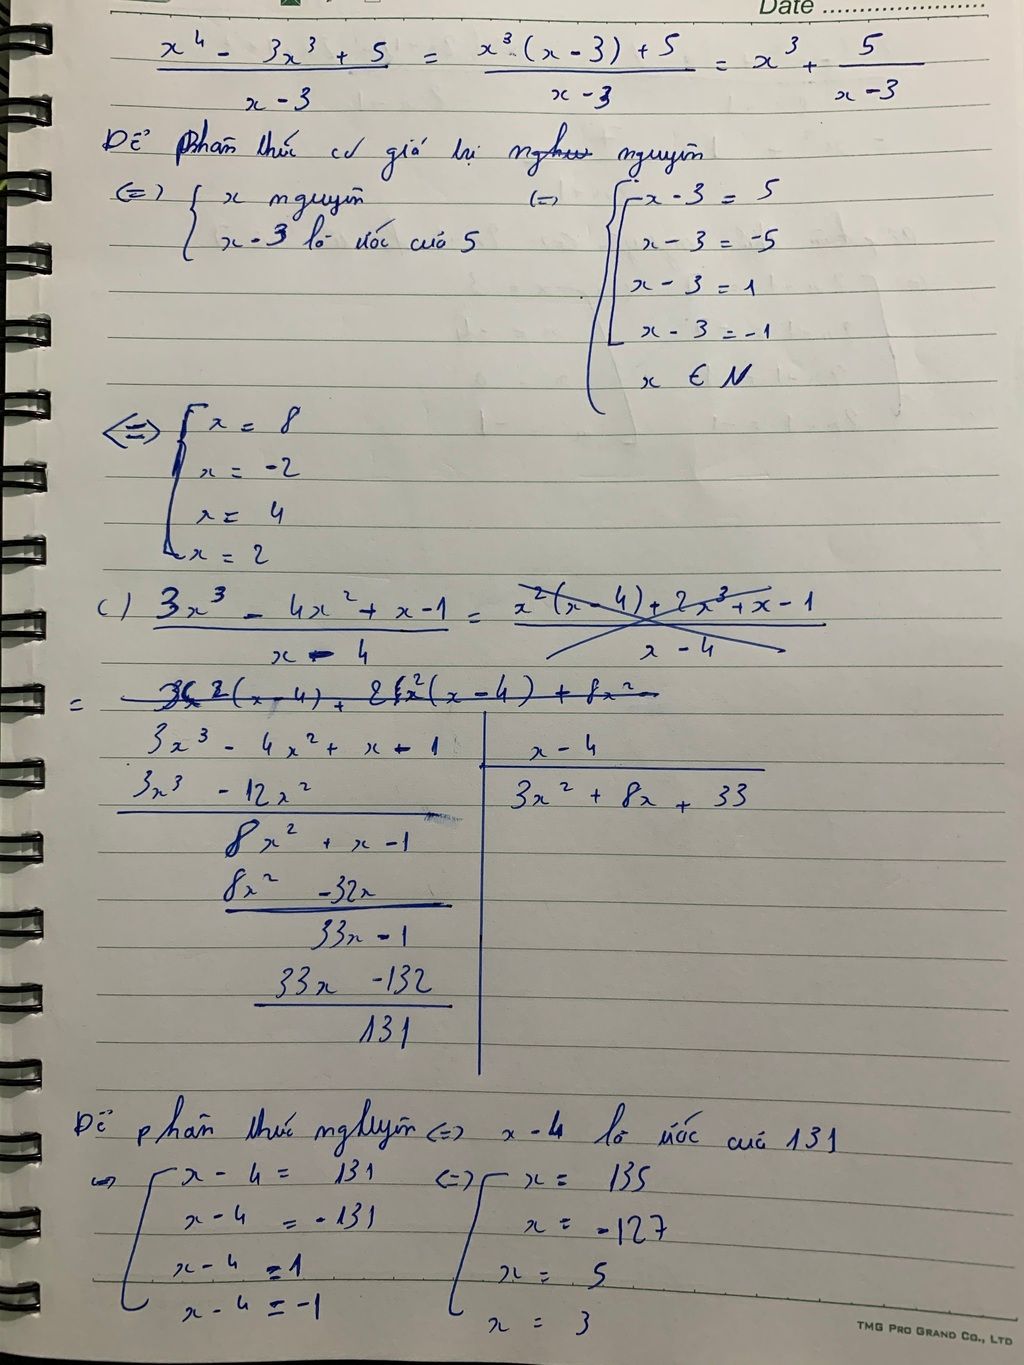 Date ........................
x⁴ - 3x³ + 5 / x - 3 = x³(x - 3) + 5 / x - 3 = x³ + 5 / x - 3
Để phân thức có giá trị nguyên
<=> { x nguyên
x - 3 là ước của 5
<=> { [ x - 3 = 5
x - 3 = -5
x - 3 = 1
x - 3 = -1
x ∈ N
<=> [ x = 8
x = -2
x = 4
x = 2
c) 3x³ - 4x² + x - 1 / x - 4 = x²(x - 4) + 2x³ + x - 1 / x - 4
=
3x³ - 4x² + x - 1 | x - 4
3x³ - 12x² | 3x² + 8x + 33
8x² + x - 1
8x² - 32x
33x - 1
33x - 132
131
Để phân thức nguyên <=> x - 4 là ước của 131
<=> [ x - 4 = 131 <=> [ x = 135
x - 4 = -131 x = -127
x - 4 = 1 x = 5
x - 4 = -1 x = 3
TMG PRO GRAND CO., LTD